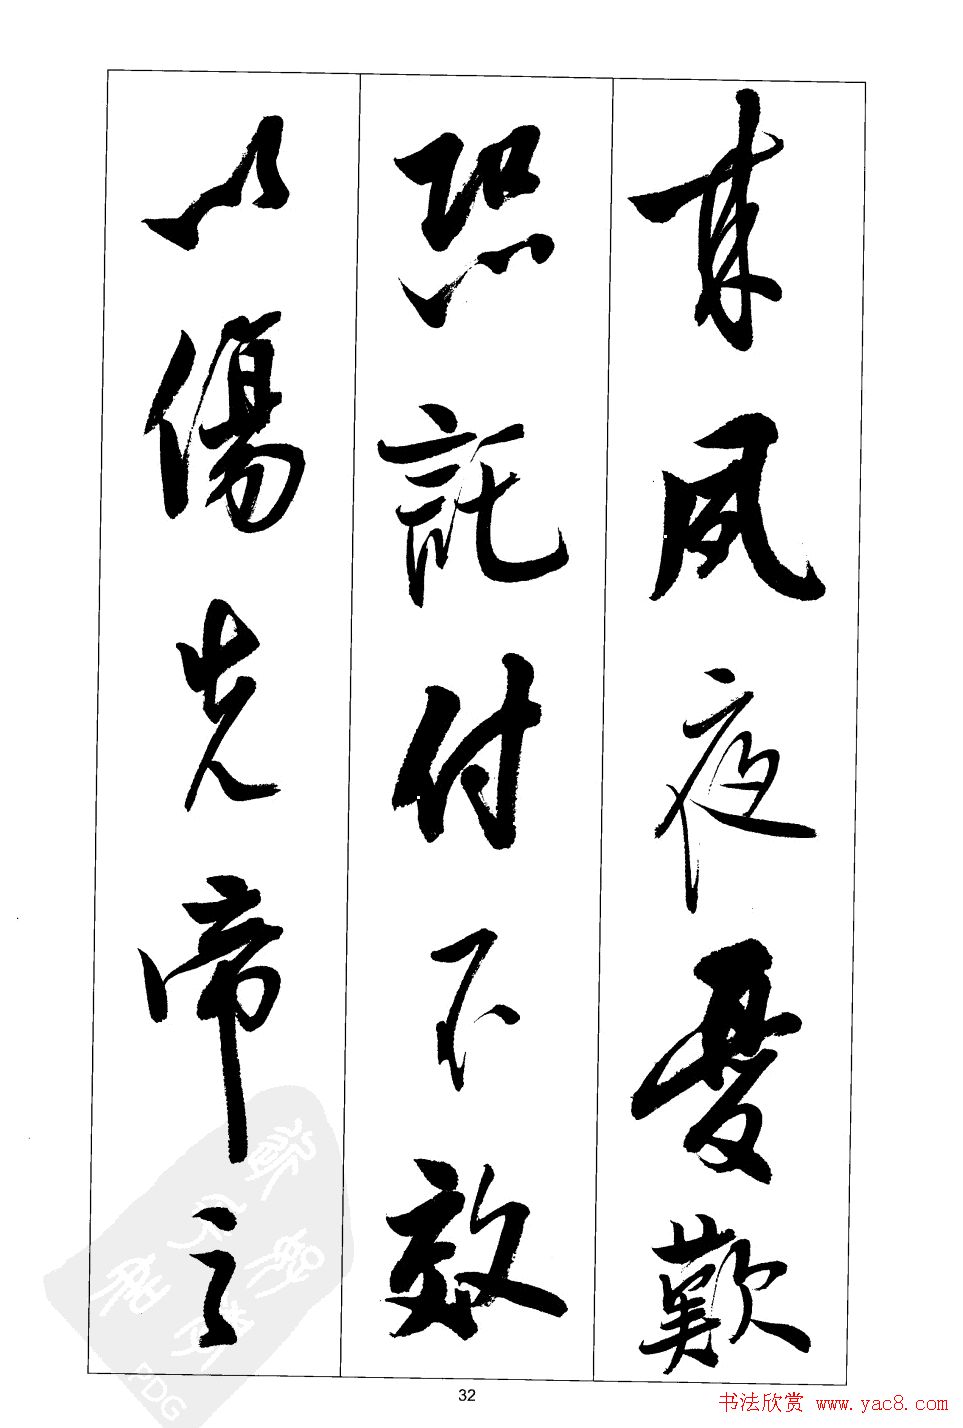 来夙夜憂歎
恐託付不效
以傷先帝之
32
书法欣赏 www.yac8.com
PDG